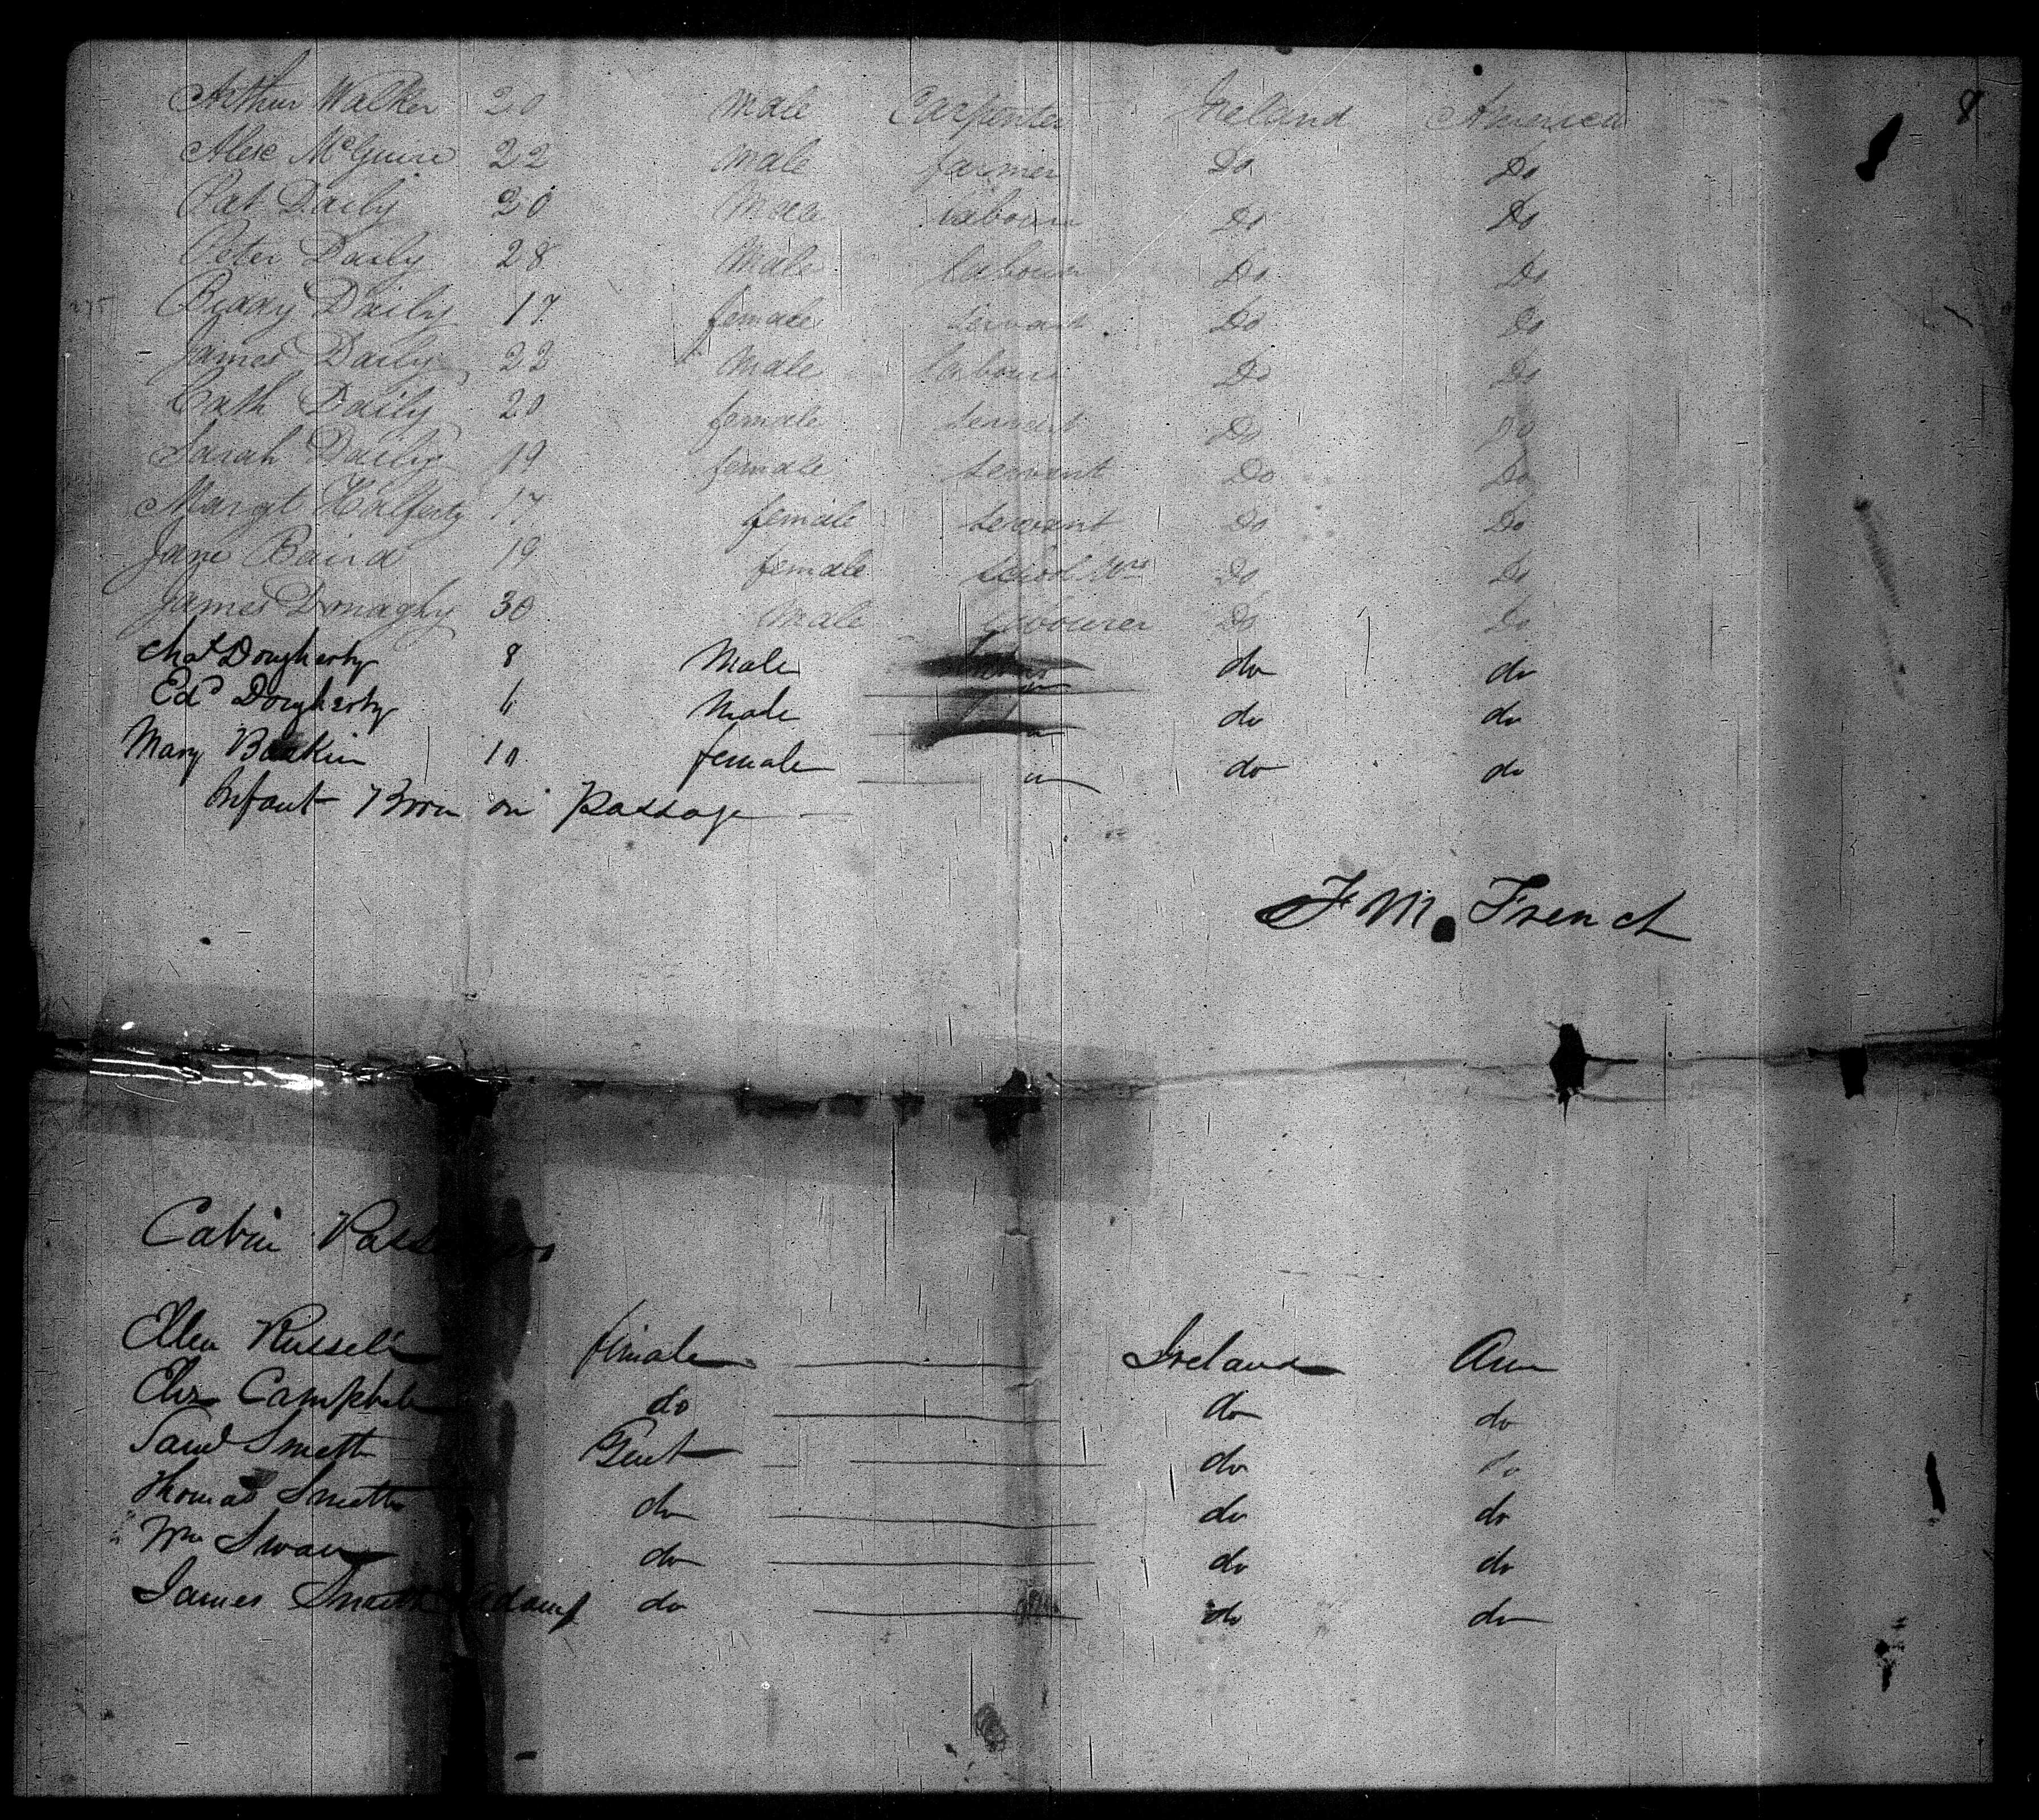 8
Arthur Walker 20 Male Carpenter Ireland America
Alex McGuire 22 Male farmer Do Do
Pat Daily 20 Male labourer Do Do
Peter Daily 28 Male labourer Do Do
Daily 17 female servant Do Do
James Daily 22 Male labourer Do Do
Cath Daily 20 female servant Do Do
Sarah Daily 19 female servant Do Do
Margt Halferty 17 female servant Do Do
Jane Baird 19 female Do Do
James Donaghy 30 Male labourer Do Do
Chas Dougherty 8 Male do do
Edd Dougherty 6 Male do do
Mary 10 female do do
Infant Born on Passage
F M. French
Cabin Passengers
Ellen Russell female Ireland Am
Eliza Campbell do do do
Saml Smeth Gent do do
Thomas Smeth do do do
Wm Swan do do do
James Smeth Adams do do do